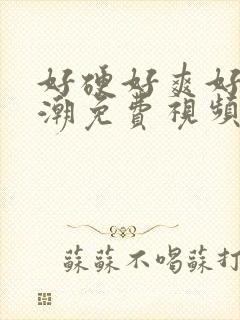 好硬好爽好
潮免费視頻
蘇蘇不喝蘇打